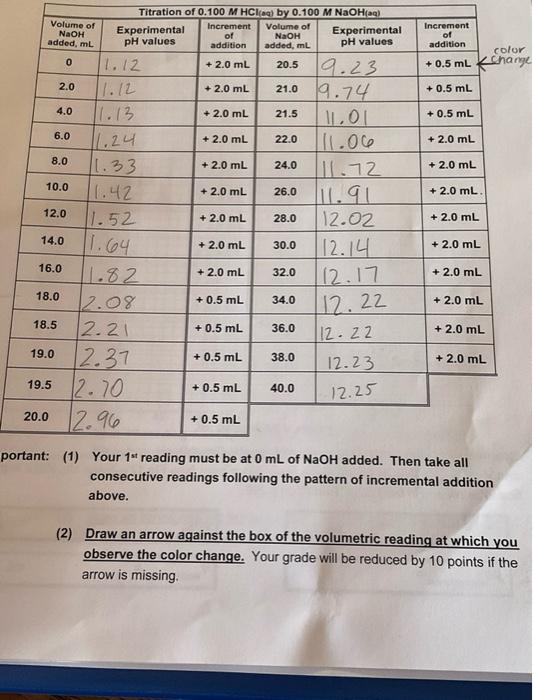 Titration of 0.100 M HCl(aq) by 0.100 M NaOH(aq)
Volume of NaOH added, mL Experimental pH values Increment of addition Volume of NaOH added, mL Experimental pH values Increment of addition
0 1.12 + 2.0 mL 20.5 9.23 + 0.5 mL color change
2.0 1.12 + 2.0 mL 21.0 9.74 + 0.5 mL
4.0 1.13 + 2.0 mL 21.5 11.01 + 0.5 mL
6.0 1.24 + 2.0 mL 22.0 11.06 + 2.0 mL
8.0 1.33 + 2.0 mL 24.0 11.72 + 2.0 mL
10.0 1.42 + 2.0 mL 26.0 11.91 + 2.0 mL
12.0 1.52 + 2.0 mL 28.0 12.02 + 2.0 mL
14.0 1.64 + 2.0 mL 30.0 12.14 + 2.0 mL
16.0 1.82 + 2.0 mL 32.0 12.17 + 2.0 mL
18.0 2.08 + 0.5 mL 34.0 12.22 + 2.0 mL
18.5 2.21 + 0.5 mL 36.0 12.22 + 2.0 mL
19.0 2.37 + 0.5 mL 38.0 12.23 + 2.0 mL
19.5 2.70 + 0.5 mL 40.0 12.25
20.0 2.96 + 0.5 mL
portant: (1) Your 1st reading must be at 0 mL of NaOH added. Then take all
consecutive readings following the pattern of incremental addition
above.
(2) Draw an arrow against the box of the volumetric reading at which you
observe the color change. Your grade will be reduced by 10 points if the
arrow is missing.